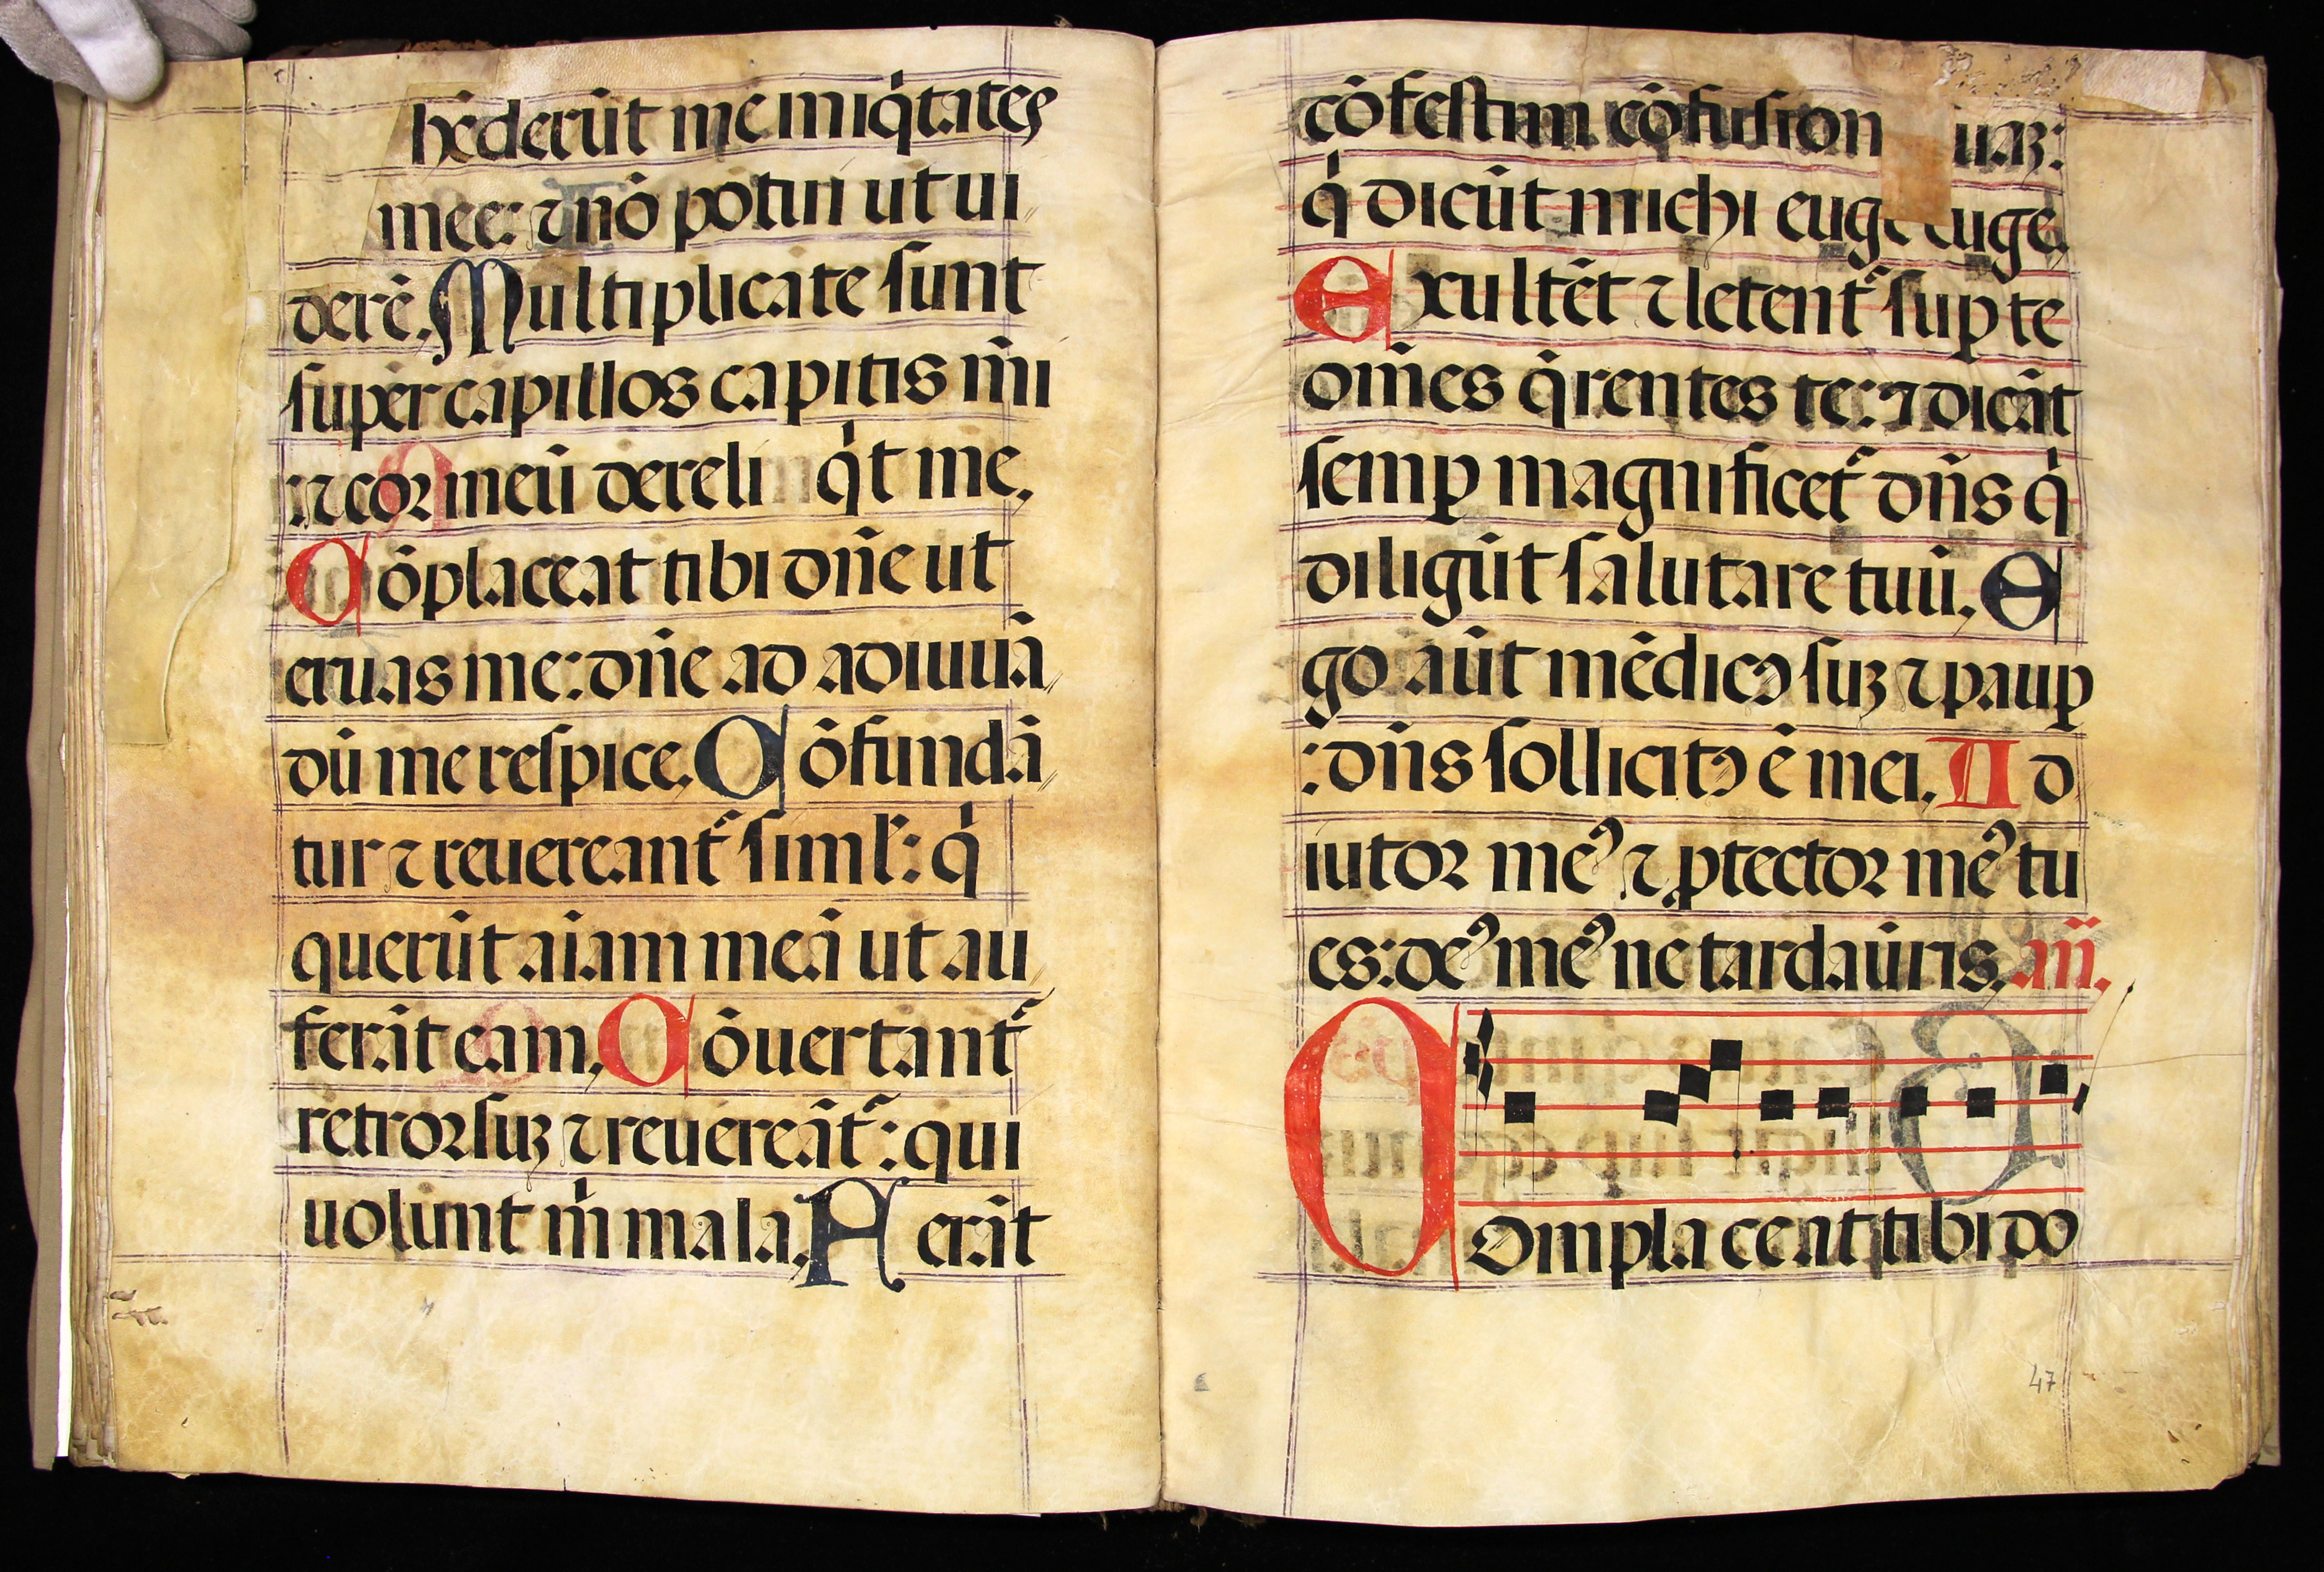 hēderūt me iniq̇tates
mee: ⁊ nō potui ut ui
derē. Multiplicate sunt
super capillos capitis m̄i
: ⁊ cor meū dereli q̇t me,
Cōplaceat tibi dn̄e ut
eruas me: dn̄e ad adiuuā
dū me respice. Cōfundā
tur ⁊ reuereant᷑ siml᷑: q̇
querūt aīam meā ut au
ferāt eam, Cōuertant᷑
retrorsuꝫ ⁊ reuereāt᷑: qui
uolunt m̍ mala, Ferāt
cōfestim cōfusion uaꝫ:
q̇ dicūt michi euge euge.
Exultēt ⁊ letent᷑ suꝑ te
om̄es q̇rentes te: ⁊ dicāt
semꝑ magnificet᷑ dn̄s q̇
diligūt salutare tuū. E
go aūt mēdicꝰ suꝫ ⁊ pauꝑ
: dn̄s sollicitꝰ ē mei. Ad
iutor meꝰ ⁊ ꝓtector meꝰ tu
es: deꝰ meꝰ ne tardau̇ris, añ.
Complaceat tibi do
47